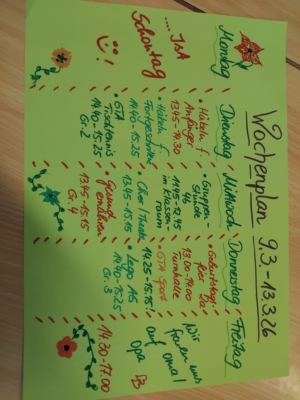 Wochenplan 9.3-13.3.26
Montag
....
Schontag
Dienstag
• Häkeln f.
Anfänger
13.45-14.30
• Häkeln f.
14.40-15.25
• GTA
Tischtennis
14.40-15.25
Gr. 2
Mittwoch
• Gruppen-
stunde
4b
11.45-12.45
im Klassen-
raum
13.45-15.15
Gesund
ernähren
13.45-15.15
Gr. 4
Donnerstag
• Geburtstags-
13.00-14.00
Turnhalle
• GTA Sport
14.25-15.15!
• Lego AG
14.40-15.25
Gr. 3
Freitag
Wir
freuen uns
auf Oma!
Opa
14.30-17.00